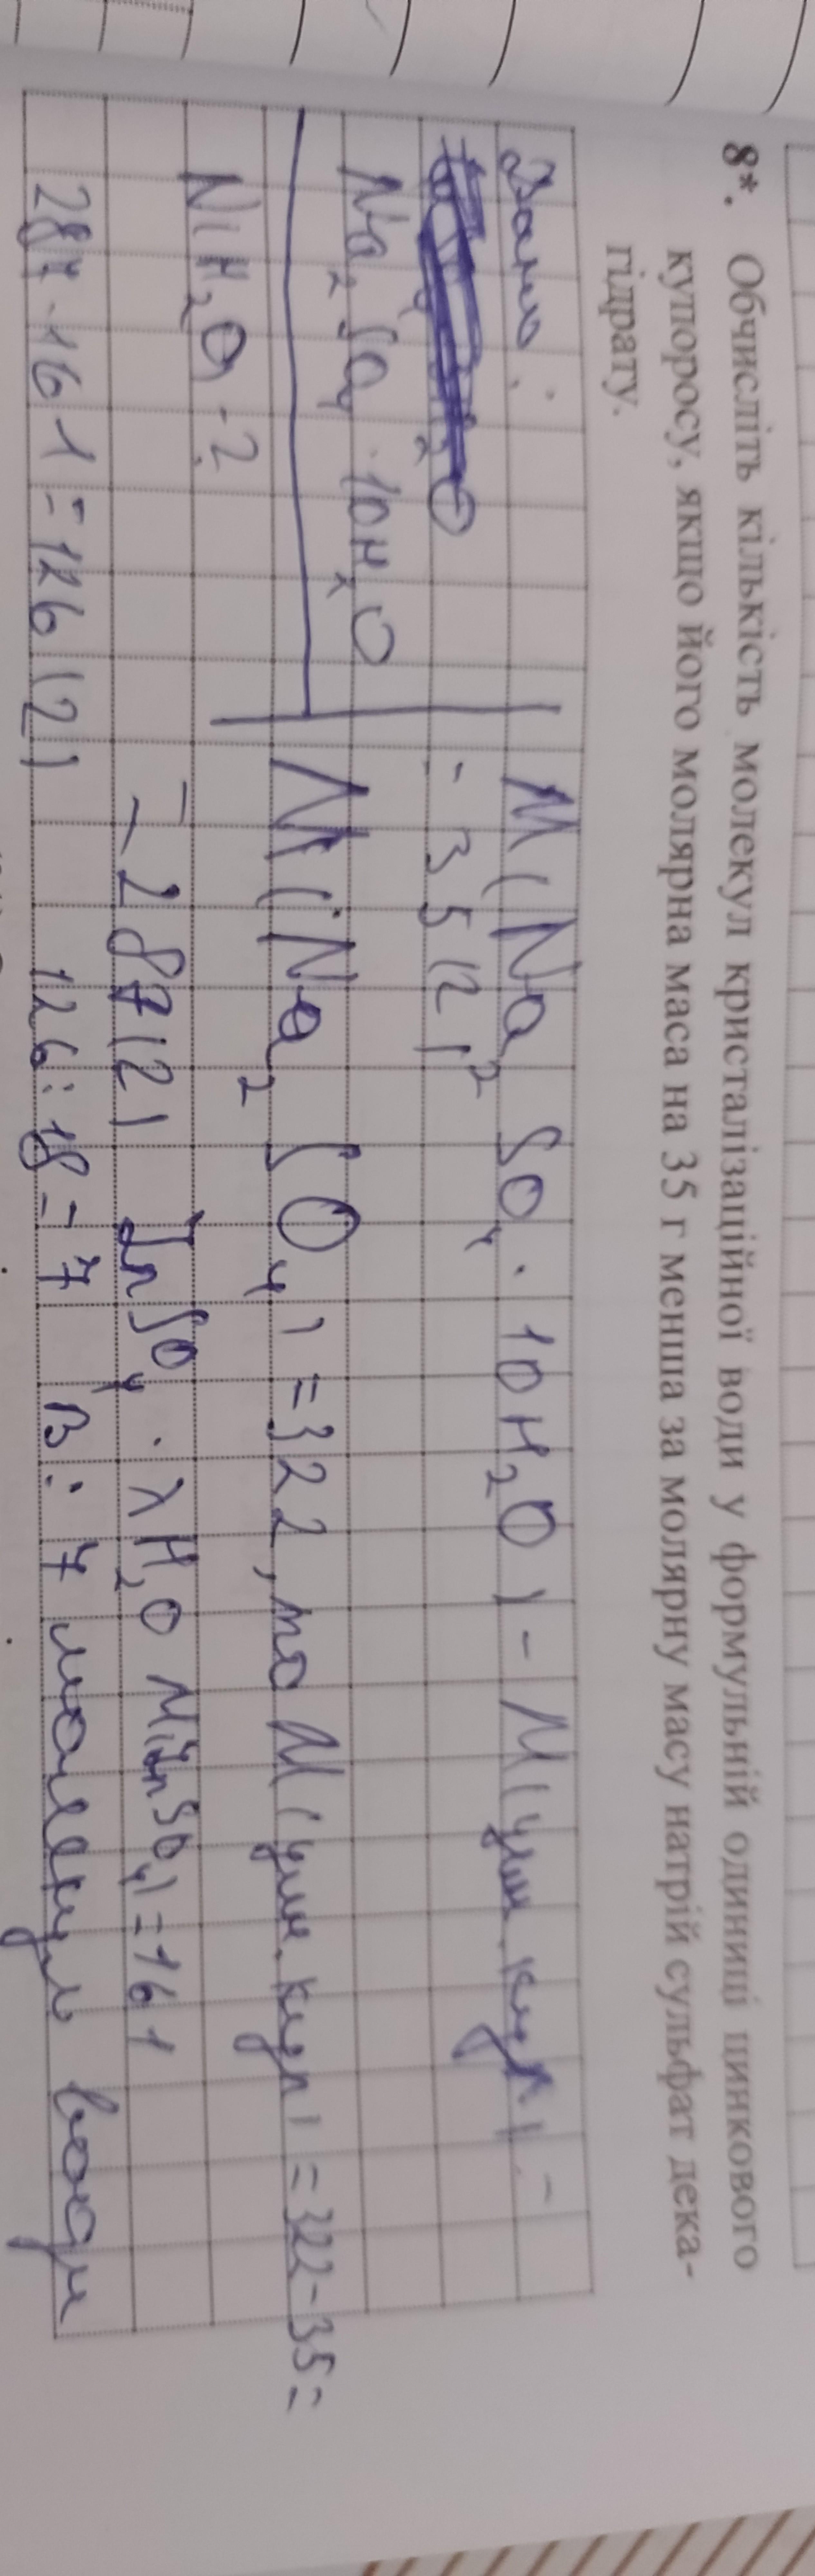 8*. Обчисліть кількість молекул кристалізаційної води у формульній одиниці цинкового
купоросу, якщо його молярна маса на 35 г менша за молярну масу натрій сульфат дека-
гідрату.
Дано:
Na₂SO₄·10H₂O
N(H₂O)-?
M(Na₂SO₄·10H₂O)-M(цин.куп)=
=35(г)
M(Na₂SO₄)=322, то M(цин.куп)=322-35=
=287(г) ZnSO₄·xH₂O M(ZnSO₄)=161
287-161=126(г) 126:18=7 В: 7 молекул води